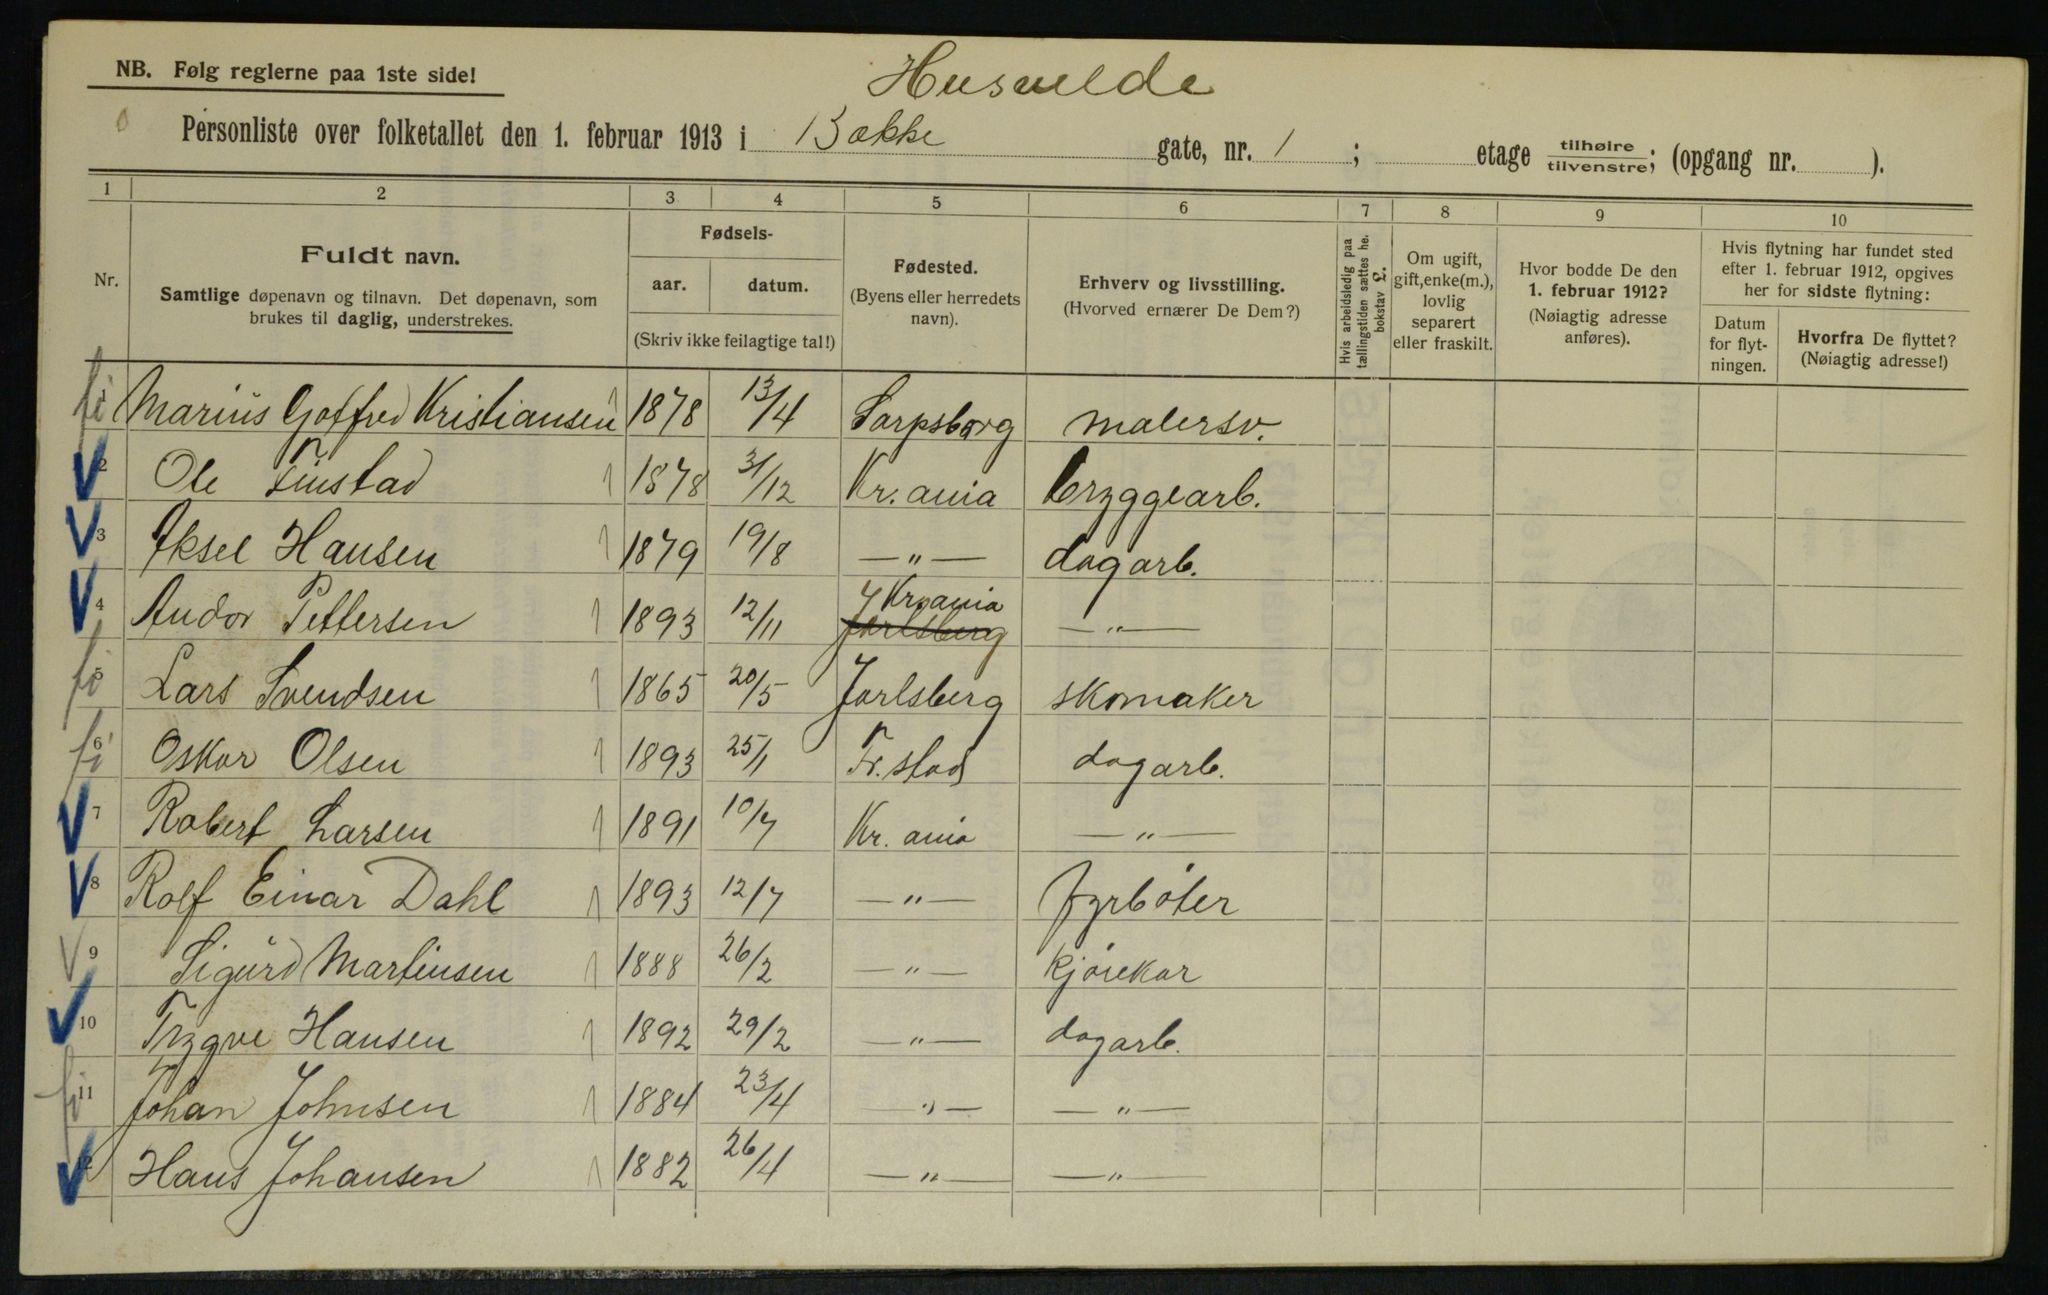 NB. Følg reglerne paa 1ste side!
Husvilde
Personliste over folketallet den 1. februar 1913 i Bakke gate, nr. 1 ; etage tilhøire/tilvenstre; (opgang nr. ).
1 2 3 4 5 6 7 8 9 10
Nr.
Fuldt navn.
Samtlige døpenavn og tilnavn. Det døpenavn, som
brukes til daglig, understrekes.
Fødsels-
aar. datum.
(Skriv ikke feilagtige tal!)
Fødested.
(Byens eller herredets
navn).
Erhverv og livsstilling.
(Hvorved ernærer De Dem?)
Hvis arbeidsledig paa
tællingstiden sættes he.
bokstav L.
Om ugift,
gift, enke(m.),
lovlig
separert
eller fraskilt.
Hvor bodde De den
1. februar 1912?
(Nøiagtig adresse
anføres).
Hvis flytning har fundet sted
efter 1. februar 1912, opgives
her for sidste flytning:
Datum
for flyt-
ningen.
Hvorfra De flyttet?
(Nøiagtig adresse!)
Marius Gotfred Kristiansen 1878 13/4 Sarpsborg malersv.
2 Ole Finstad 1878 31/12 Kr.ania bryggearb.
3 Aksel Hansen 1879 19/8 —"— dagarb.
4 Andor Pettersen 1893 12/11 Kr.ania Jarlsberg —"—
5 Lars Svendsen 1865 20/5 Jarlsberg skomaker
6 Oskar Olsen 1893 25/1 Fr.stad dagarb.
7 Robert Larsen 1891 10/7 Kr.ania —"—
8 Rolf Einar Dahl 1893 12/7 —"— fyrbøter
9 Sigurd Martinsen 1888 26/2 —"— kjørekar
10 Trygve Hansen 1892 29/2 —"— dagarb.
11 Johan Johnsen 1884 23/4 "— —"—
12 Hans Johansen 1882 26/4 —"— —"—